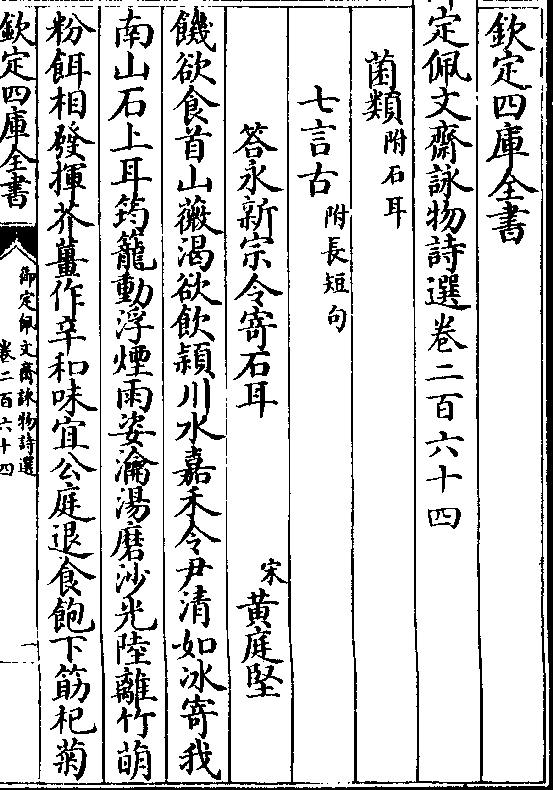 欽定四庫全書
御定佩文齋詠物詩選卷二百六十四
菌類附石耳
七言古附長短句
答永新宗令寄石耳 宋黃庭堅
饑欲食首山薇渴欲飲潁川水嘉禾令尹清如冰寄我
南山石上耳筠籠動浮煙雨姿瀹湯磨沙光陸離竹萌
粉餌相發揮芥薑作辛和味宜公庭退食飽下筯杞菊
欽定四庫全書
御定佩文齋詠物詩選
卷二百六十四
一